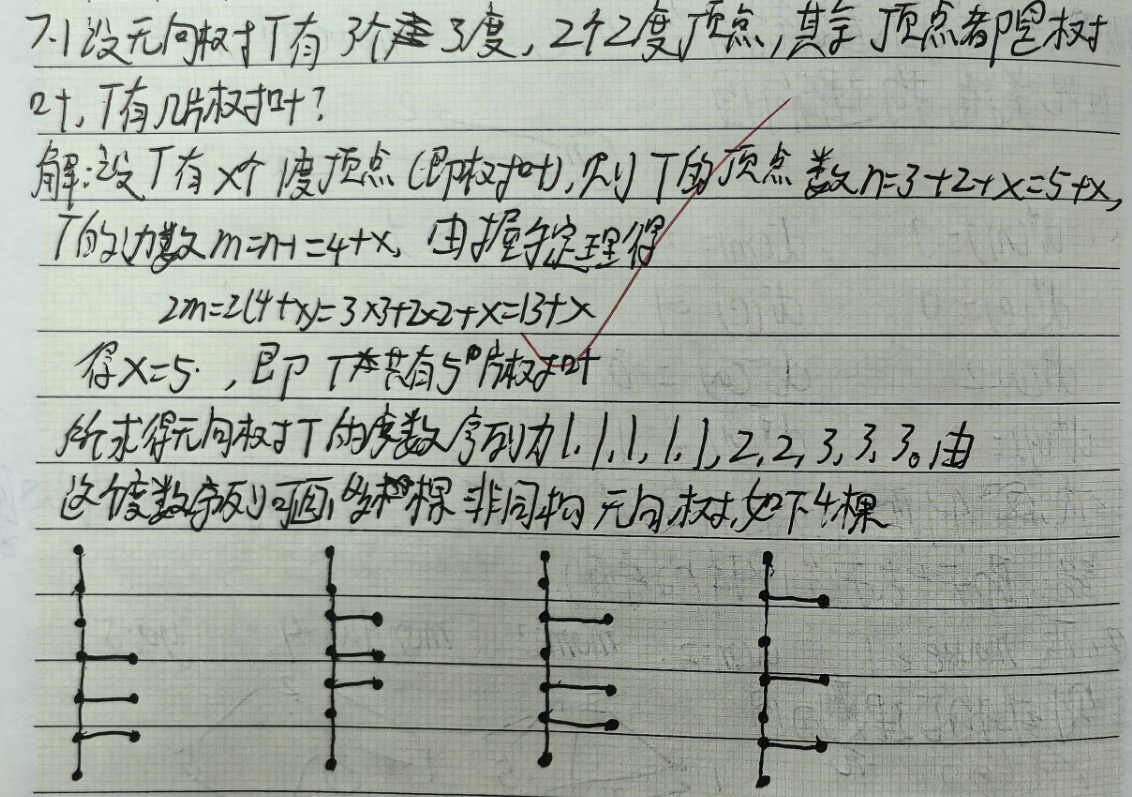 7.1 设无向树T有3个3度,2个2度顶点,其余顶点都是树
叶,T有几片树叶?
解:设T有x个1度顶点(即树叶),则T的顶点数n=3+2+x=5+x,
T的边数m=n-1=4+x,由握手定理得
2m=2(4+x)=3×3+2×2+x=13+x
得x=5,即T共有5片树叶
所求得无向树T的度数序列为1,1,1,1,1,2,2,3,3,3。由
这个度数序列可画多棵非同构无向树,如下4棵